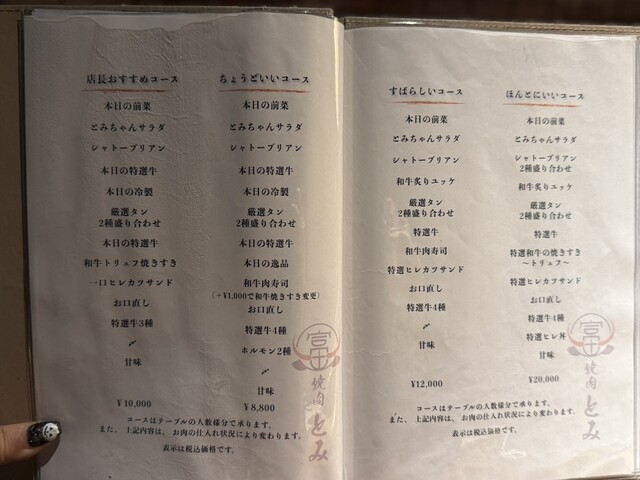 店長おすすめコース
本日の前菜
とみちゃんサラダ
シャトーブリアン
本日の特選牛
本日の冷製
厳選タン
2種盛り合わせ
本日の特選牛
和牛トリュフ焼きすき
一口ヒレカツサンド
お口直し
特選牛3種
〆
甘味
¥10,000
ちょうどいいコース
本日の前菜
とみちゃんサラダ
シャトーブリアン
本日の特選牛
本日の冷製
厳選タン
2種盛り合わせ
本日の特選牛
本日の逸品
和牛肉寿司
(+¥1,000で和牛焼きすき変更)
お口直し
特選牛4種
ホルモン2種
〆
甘味
¥8,800
コースはテーブルの人数様分で承ります。
また、上記内容は、お肉の仕入れ状況により変わります。
表示は税込価格です。
富
焼肉 とみ
すばらしいコース
本日の前菜
とみちゃんサラダ
シャトーブリアン
和牛炙りユッケ
厳選タン
2種盛り合わせ
特選牛
和牛肉寿司
特選ヒレカツサンド
お口直し
特選牛4種
〆
甘味
¥12,000
ほんとにいいコース
本日の前菜
とみちゃんサラダ
シャトーブリアン
2種盛り合わせ
和牛炙りユッケ
厳選タン
2種盛り合わせ
特選牛
特選和牛の焼きすき
〜トリュフ〜
特選ヒレカツサンド
お口直し
特選牛4種
特選ヒレ丼
甘味
¥20,000
コースはテーブルの人数様分で承ります。
また、上記内容は、お肉の仕入れ状況により変わります。
表示は税込価格です。
富
焼肉 とみ